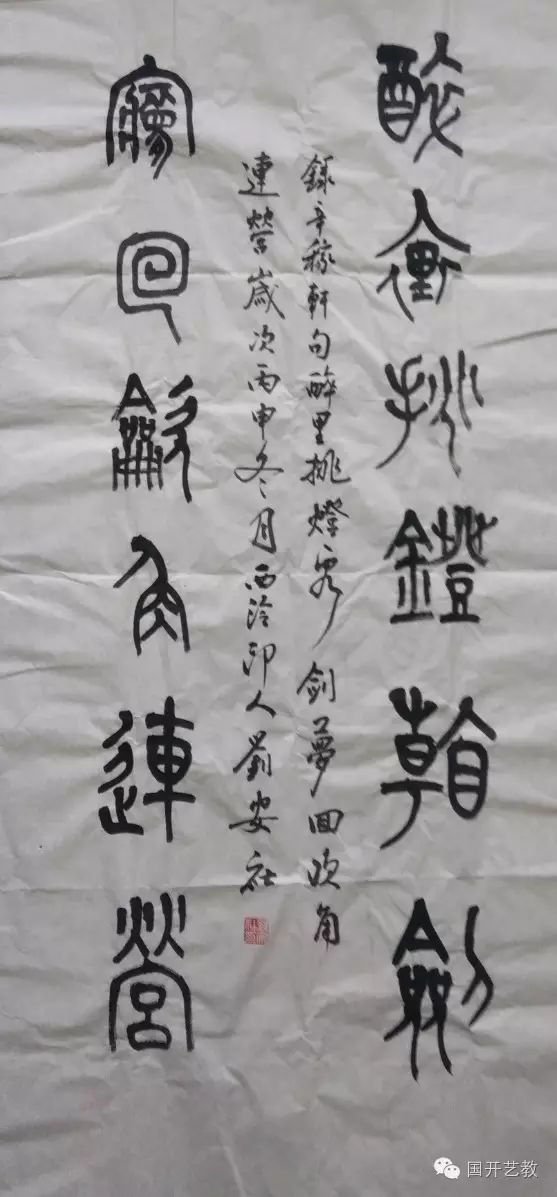 醉裏挑鐙看劍
錄辛稼軒句醉里挑燈看劍夢回吹角
連營歲次丙申冬月西泠印人劉安社
夢回龡角連營
国开艺教